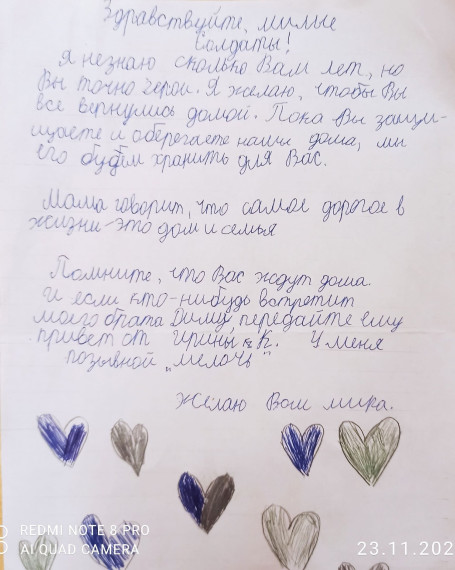 Здравствуйте, милые
солдаты!
Я незнаю сколько Вам лет, но
Вы точно герои. Я желаю, чтобы Вы
все вернулись домой. Пока Вы защи-
щаете и оберегаете наши дома, мы
его будем хранить для Вас.
Мама говорит, что самое дорогое в
жизни-это дом и семья
Помните, что Вас ждут дома.
И если кто-нибудь встретит
моего брата Диму, передайте ему
привет от Ирины К. У меня
позывной "мелочь"
Желаю Вам мира.
REDMI NOTE 8 PRO
AI QUAD CAMERA
23.11.202